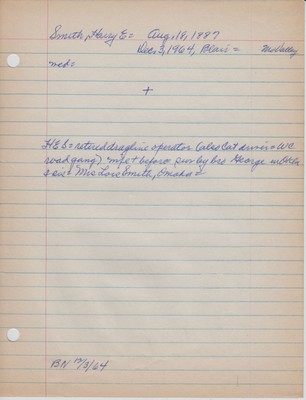 Smith, Harry E= Aug, 18, 1887
Dec, 3, 1964, Blair= Mrs Valley
med=
+
HES= retired dragline operator (also Cat driver= WC
road gang) wife + before sur by bro George
& sis= Mrs Lois Smith, Omaha=
BN 12/3/64